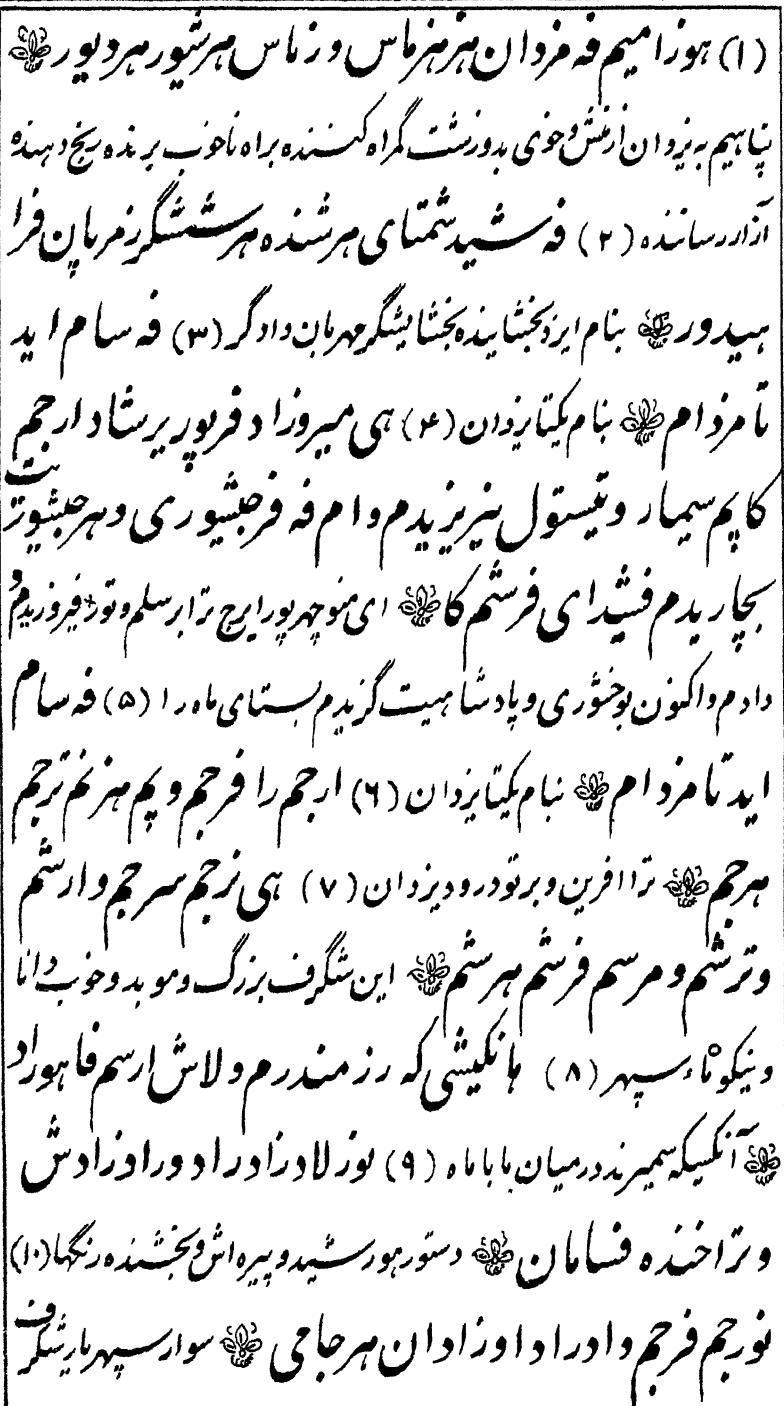 (۱) هوزامیم فه مزدان هزهزماس وزماس هرشیور هردیور
پناهیم به یزدان ازمنش و خوی بد و زشت گمراه کننده براه ناخوب برنده رنج دهنده
آزار رساننده (۲) فه شید شمتای هرشنده هرششگر زمرپان فرا
هیدور بنام ایزد بخشاینده بخشایشگر مهربان دادگر (۳) فه سام اید
تا مزدام بنام یکتا یزدان (۴) هی میروزاد فرپور یرشاد ارجم
کاپم سیمار و تیستول نیزیزیدم و ام فه فرجیشوری و هرجیشورنت
بچاریدم فشیدای فرشم کا ای منوچهر پور ایرج ترا بر سلم و تور فیروزیدم و
دادم و اکنون بوخشوری و پادشاهیت گزیدم بستای ماه را (۵) فه سام
اید تا مزدام بنام یکتا یزدان (۶) ارجم را فرجم و پم هزنم ترجم
هرجم ترا آفرین و بر تو درود یزدان (۷) هی نرجم سرجم و ارشم
و ترشم و مرسم فرشم هرشم این شگرف بزرگ و موبد و خوب دانا
و نیکو ماه سپهر (۸) هانکیشی که رزمندرم ولاش ارسم فاهوراد
آنکسیکه سمیرند در میان ما با ماه (۹) نوزلادزادراد و رادزادش
و تراخنده فسامان دستور هورشید و پیره اش و بخشنده رنگها (۱۰)
نورجم فرجم و ادراد اوزادان هرجامی سوار سپهر یار شگرف